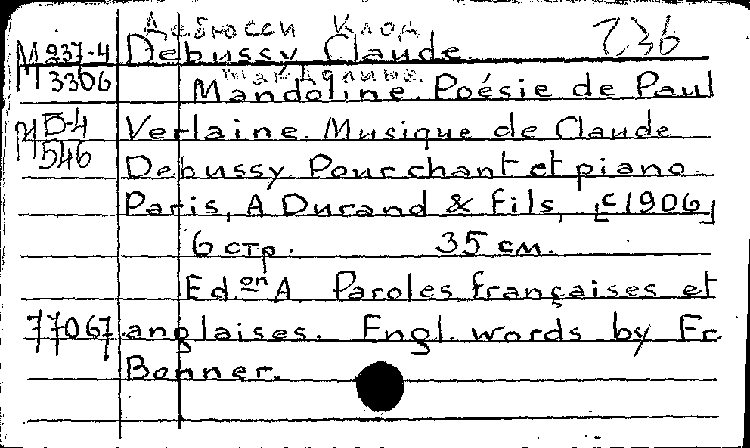 Дебюсси Клод 236
М 237-4 Debussy Claude.
П 3306 Мандолина.
Mandoline. Poésie de Paul
М Б-4 Verlaine. Musique de Claude
П 546 Debussy Pour chant et piano
Paris, A Durand & fils, [c 1906]
6 стр. 35 см.
Ed.on A. Paroles françaises et
77067 anglaises. Engl. words by Fr.
Bonner.